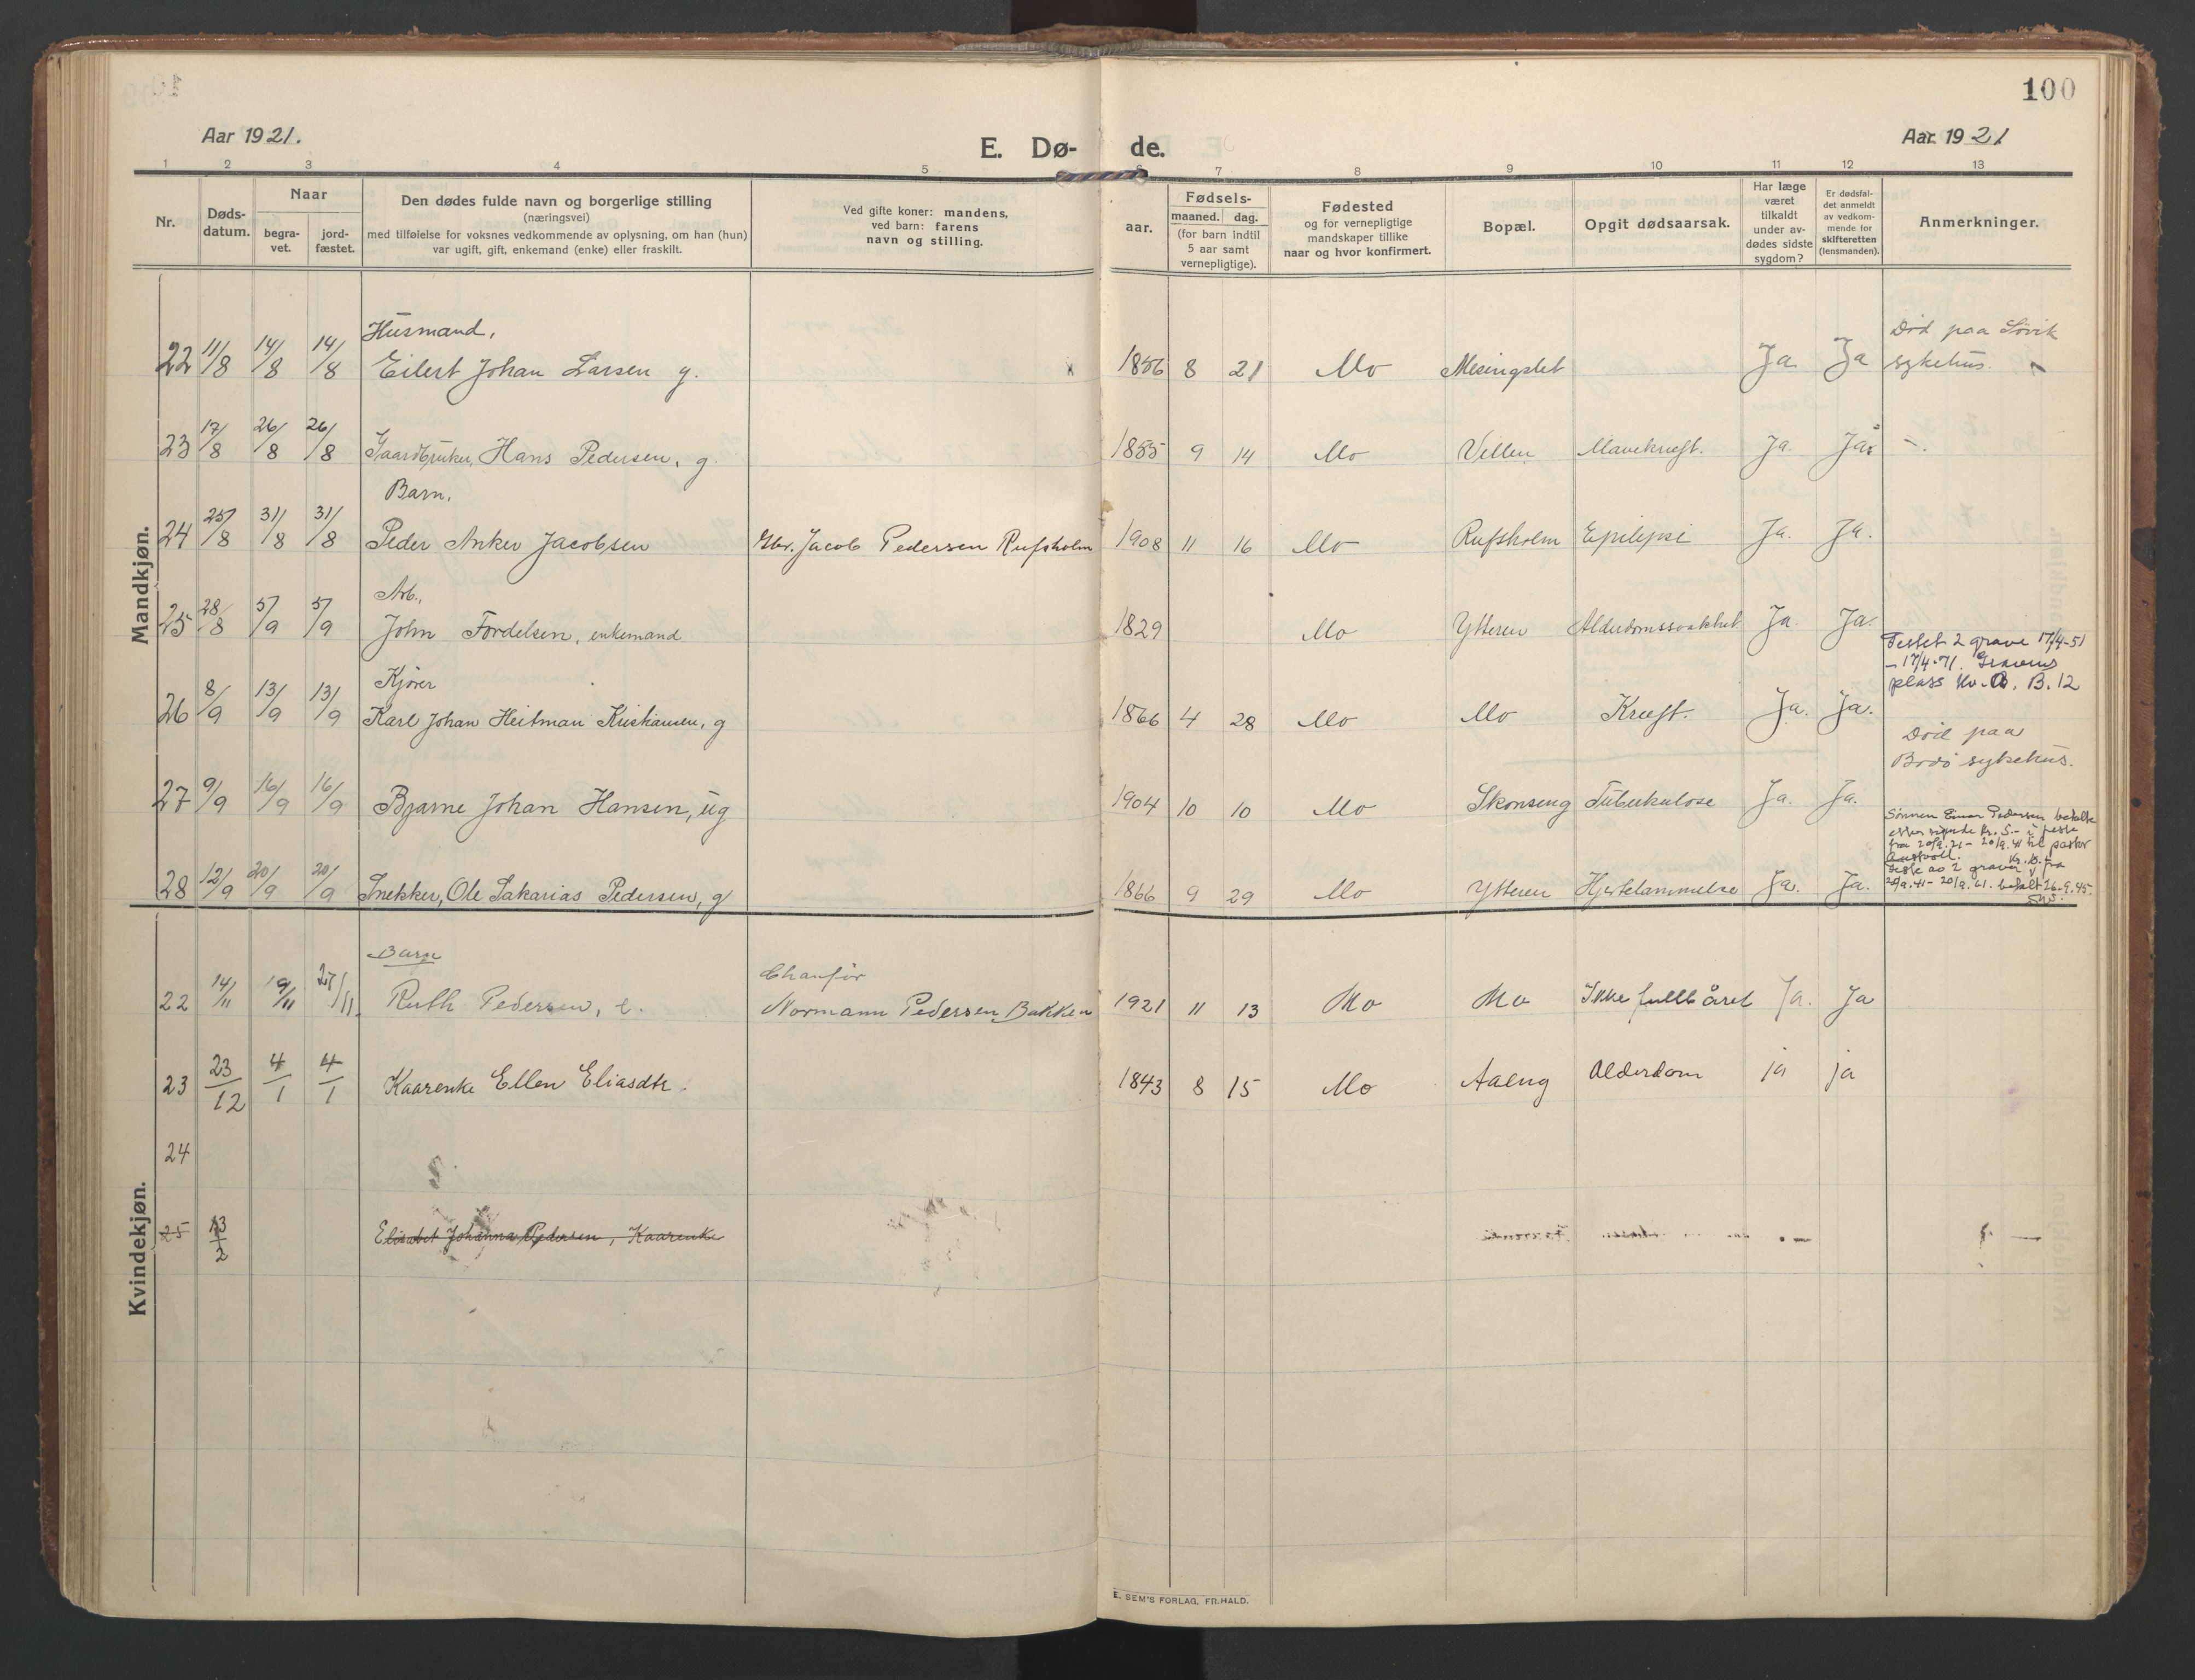 100
Aar 1921.
E. Dø- de.
Aar 1921
1 2 3 4 5 6 7 8 9 10 11 12 13
Nr.
Døds-
datum.
Naar
begra-
vet.
jord-
fæstet.
Den dødes fulde navn og borgerlige stilling
(næringsvei)
med tilføielse for voksnes vedkommende av oplysning, om han (hun)
var ugift, gift, enkemand (enke) eller fraskilt.
Ved gifte koner: mandens,
ved barn: farens
navn og stilling.
aar.
Fødsels-
maaned. dag.
(for barn indtil
5 aar samt
vernepligtige).
Fødested
og for vernepligtige
mandskaper tillike
naar og hvor konfirmert.
Bopæl.
Opgit dødsaarsak.
Har læge
været
tilkaldt
under av-
dødes sidste
sygdom?
Er dødsfal-
det anmeldt
av vedkom-
mende for
skifteretten
(lensmanden).
Anmerkninger.
Mandkjøn.
Husmand,
22 11/8 14/8 14/8 Eilert Johan Larsen g. 1856 8 21 Mo Mesingslet Ja Ja
Død paa Søvik
sykehus.
23 17/8 26/8 26/8 Gaardbruker, Hans Pedersen, g. 1855 9 14 Mo Vellen Mavekreft. Ja. Ja
Barn,
24 25/8 31/8 31/8 Peder Anker Jacobsen Gbr. Jacob Pedersen Rufsholm 1908 11 16 Mo Rufsholm Epilepsi Ja. Ja.
Arb.,
25 28/8 5/9 5/9 John Fordelsen, enkemand 1829 Mo Ytteren Alderdomssvakhet Ja. Ja.
Festet 2 grave 17/4-51
- 17/4-71. Gravens
plass Kv. B. 12
Kjører
26 8/9 13/9 13/9 Karl Johan Heitman Kristiansen, g 1866 4 28 Mo Mo Kreft. Ja. Ja.
Død paa
Bodø sykehus.
27 9/9 16/9 16/9 Bjarne Johan Hansen, ug 1904 10 10 Mo Skonseng Tuberkulose Ja. Ja.
Sønnen Einar Pedersen betalte
kr. 5.- i feste
fra 20/9.21 - 20/9.41 til pastor
Kr. 10.-
Feste av 2 graver fra
20/9.41 - 20/9.61. betalt 26-9.45.
28 12/9 20/9 20/9 Snekker, Ole Sakarias Pedersen, g 1866 9 29 Mo Ytteren Hjertelammelse Ja. Ja.
Kvindekjøn.
Barn
Chaufør
22 14/11 19/11 27/11. Ruth Pedersen, Normann Pedersen Bakken 1921 11 13 Mo Mo Ikke fullbåret Ja. Ja
23 23/12 4/1 4/1 Kaarenke Ellen Eliasdtr. 1843 8 15 Mo Aaeng Alderdom ja ja
24
25 13/2 Elisabet Johanna Pedersen, Kaarenke
E. SEM'S FORLAG, FR.HALD.